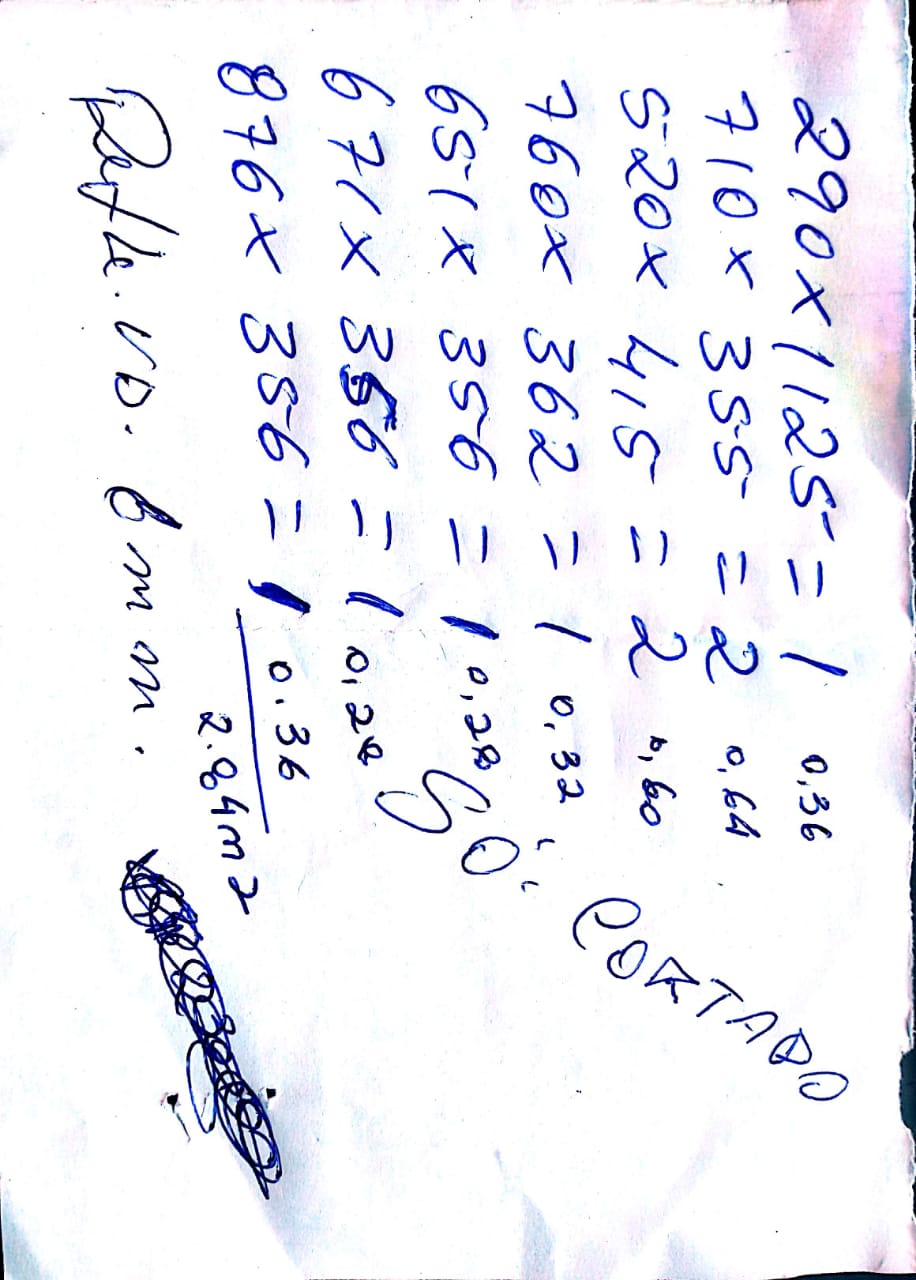 290 x 1125 = 1 0,36
710 x 355 = 2 0,64
520 x 415 = 2 0,60
760 x 362 = 1 0,32
651 x 356 = 1 0,28
671 x 356 = 1 0,28
876 x 356 = 1 0.36
2.84 m2
SÓ CORTADO
6 mm.